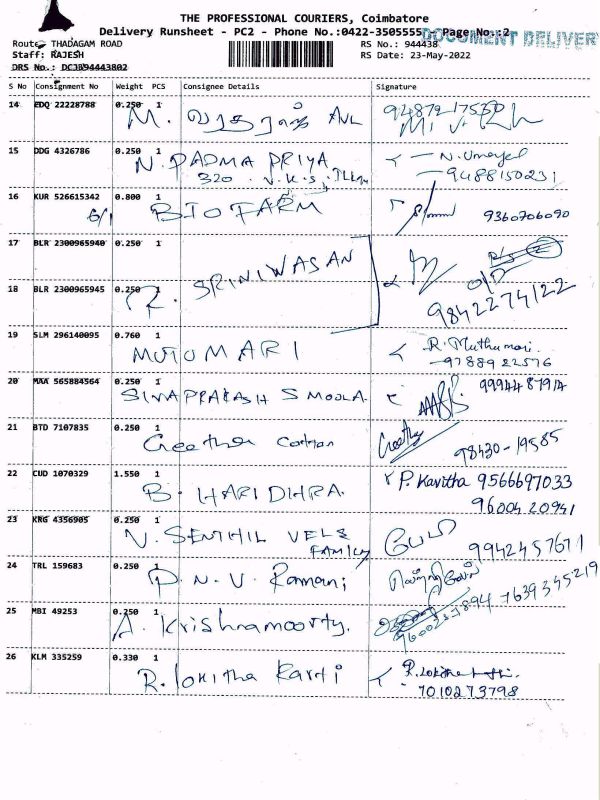 THE PROFESSIONAL COURIERS, Coimbatore
Delivery Runsheet - PC2 - Phone No.:0422-3505555 - Page No.:2
DOCUMENT DELIVERY
Route: THADAGAM ROAD RS No.: 944438
Staff: RAJESH RS Date: 23-May-2022
DRS No.: DCJB94443802
S No Consignment No Weight PCS Consignee Details Signature
14 EDQ 22228788 0.250 1 M. வரதராஜ் AVL
15 DDG 4326786 0.250 1 N. PADMA PRIYA N. Umayal
320 V.K.S. 9488150231
16 KUR 526615342 0.800 1 BIOFARM 9360706090
6/1
17 BLR 2300965940 0.250 1
R. SRINIWASAN
18 BLR 2300965945 0.250 1 9842274122
19 SLM 296140095 0.760 1 MUTUMARI R. Muthumari
9788922576
20 MAA 565884564 0.250 1 SIVAPRAKASH S MOOLA 9994487914
21 BTD 7107835 0.250 1 Geetha Cotton Geetha 98430-19585
22 CUD 1070329 1.550 1 B. HARIDHRA P. Kavitha 9566697033
9600420941
23 KRG 4356905 0.250 1 V. SENTHIL VELS 9942457671
FAMILY
24 TRL 159683 0.250 P. N. V. Ramani 7639345219
25 MBI 49253 0.250 1 A. Krishnamoorty.
26 KLM 335259 0.330 1 R. lokitha Karthi
7010273798